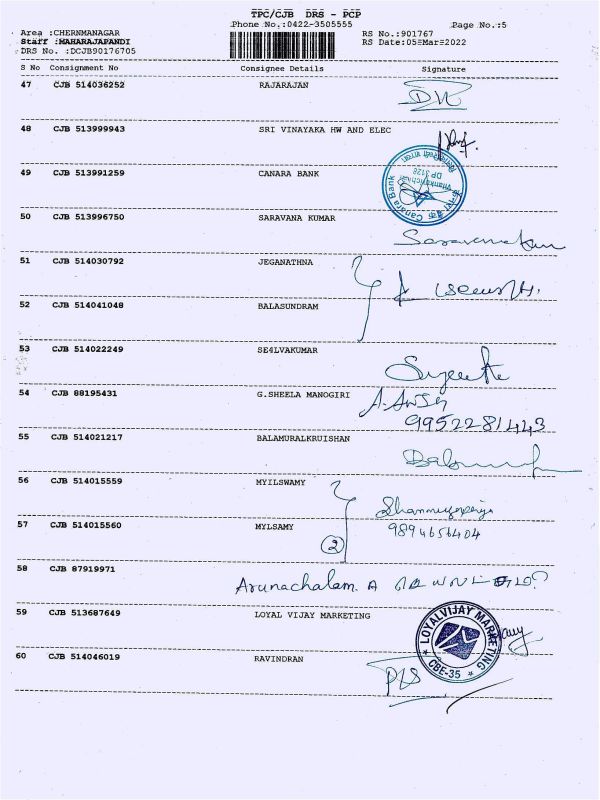 TPC/CJB DRS - PCP
Phone No.:0422-3505555
Page No.:5
Area :CHERNMANAGAR
Staff :MAHARAJAPANDI
DRS No. :DCJB90176705
RS No.:901767
RS Date:05-Mar-2022
S No Consignment No Consignee Details Signature
47 CJB 514036252 RAJARAJAN
48 CJB 513999943 SRI VINAYAKA HW AND ELEC
49 CJB 513991259 CANARA BANK
Canara Bank
DP 3128
50 CJB 513996750 SARAVANA KUMAR
51 CJB 514030792 JEGANATHNA
52 CJB 514041048 BALASUNDRAM
53 CJB 514022249 SE4LVAKUMAR
54 CJB 88195431 G.SHEELA MANOGIRI
9952281443
55 CJB 514021217 BALAMURALKRUISHAN
56 CJB 514015559 MYILSWAMY
57 CJB 514015560 MYLSAMY
2
9894656404
58 CJB 87919971
Arunachalam. A
59 CJB 513687649 LOYAL VIJAY MARKETING
LOYALVIJAY MARKETING
CBE-35
60 CJB 514046019 RAVINDRAN